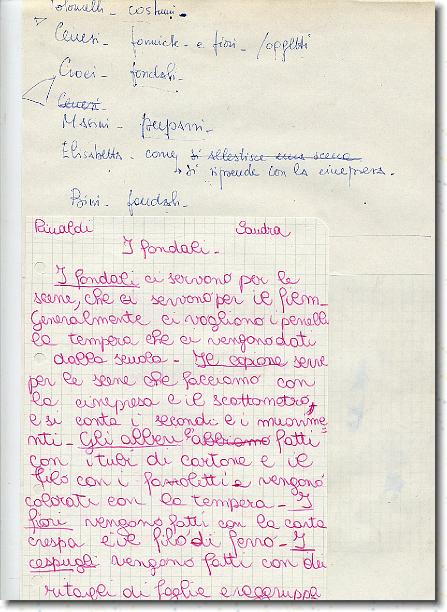 Colonelli - costumi -
Cenesi - formiche - e fiori - /oggetti
Croci - fondali -
Cenesi -
Masini - pupazzi -
Elisabetta - come si allestisce una scena
si riprende con la cinepresa.
Bini - fondali -
Rinaldi Sandra
I fondali -
I fondali ci servono per le
scene, che ci servono per il film -
Generalmente ci vogliono i penelli
la tempera che ci vengono dati
dalla scuola - Il copione serve
per le scene che facciamo con
la cinepresa e il scattometro,
e si conta i secondi e i muovime
nti - Gli alberi l'abbiamo fatti
con i tubi di cartone e il
filo con i fazoletti e vengono
colorati con la tempera - I
fiori vengono fatti con la carta
crespa e il filo di ferro - I
cespugli vengono fatti con dei
ritagli di foglie